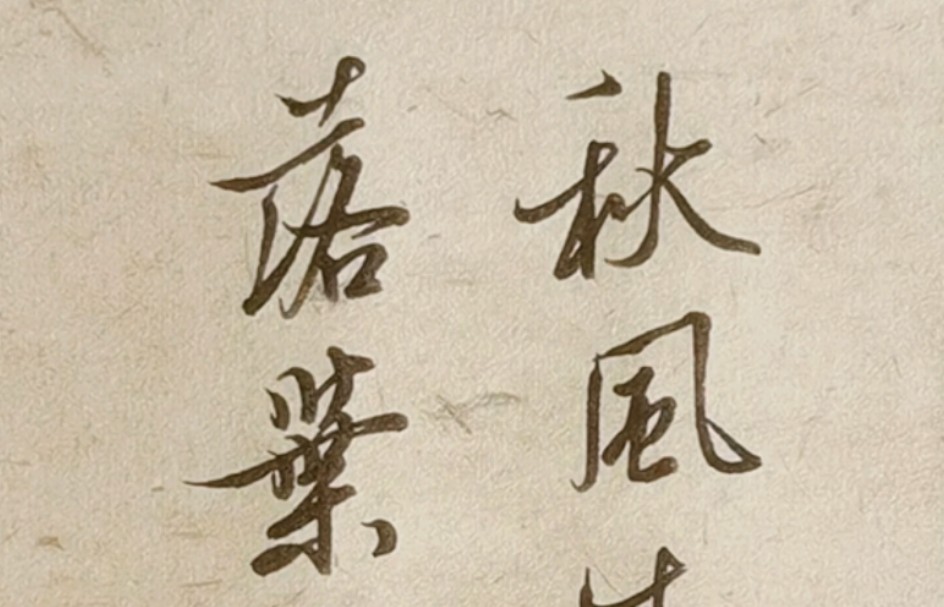 秋風
落葉